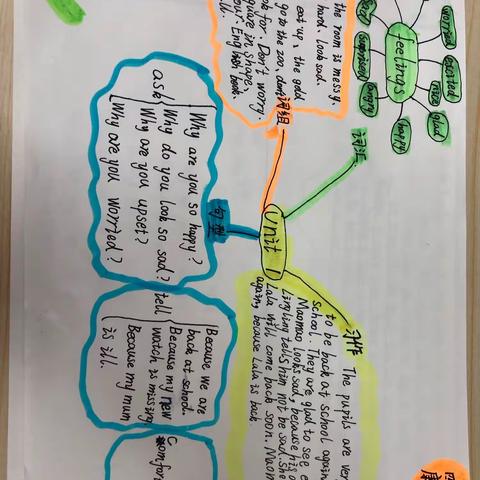 the room is messy.
hard, look sad.
eat up, the gold
go to the zoo, don
for. Don't worry.
in share,
词组
feelings
worried
excited
glad
happy
angry
surprised
词汇
Unit 1
句型
ask
Why are you so happy?
Why do you look so sad?
Why are you upset?
Why are you worried?
tell
Because we are
back at school.
Because my new
watch is missing
Because my mum
is ill.
Comfor
The pupils are ver
to be back at school again
school. They are glad to see e
Maomao looks sad, because his
Lingling tells him not be sad. She
Lala will come back soon. Maom
again, because Lala is back